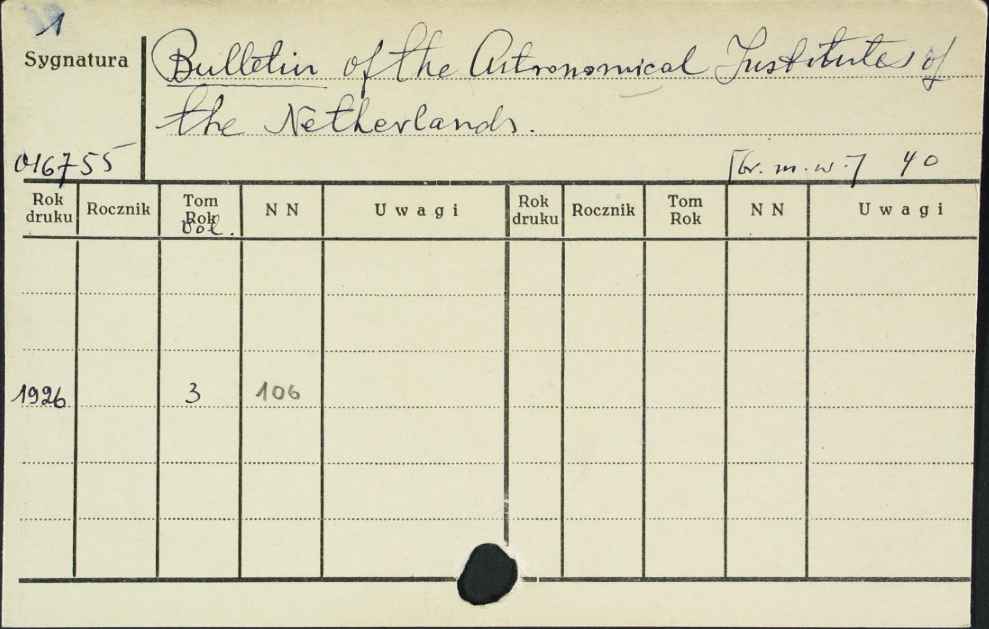 1
Sygnatura
Bulletin of the Astronomical Institutes of
the Netherlands.
016755
[br. m. w.] 40
Rok druku Rocznik Tom Rok Vol. N N Uwagi Rok druku Rocznik Tom Rok N N Uwagi
1926 3 106